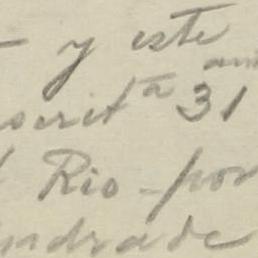 - y este
scrit ª 31
l Rio - por
Andrade